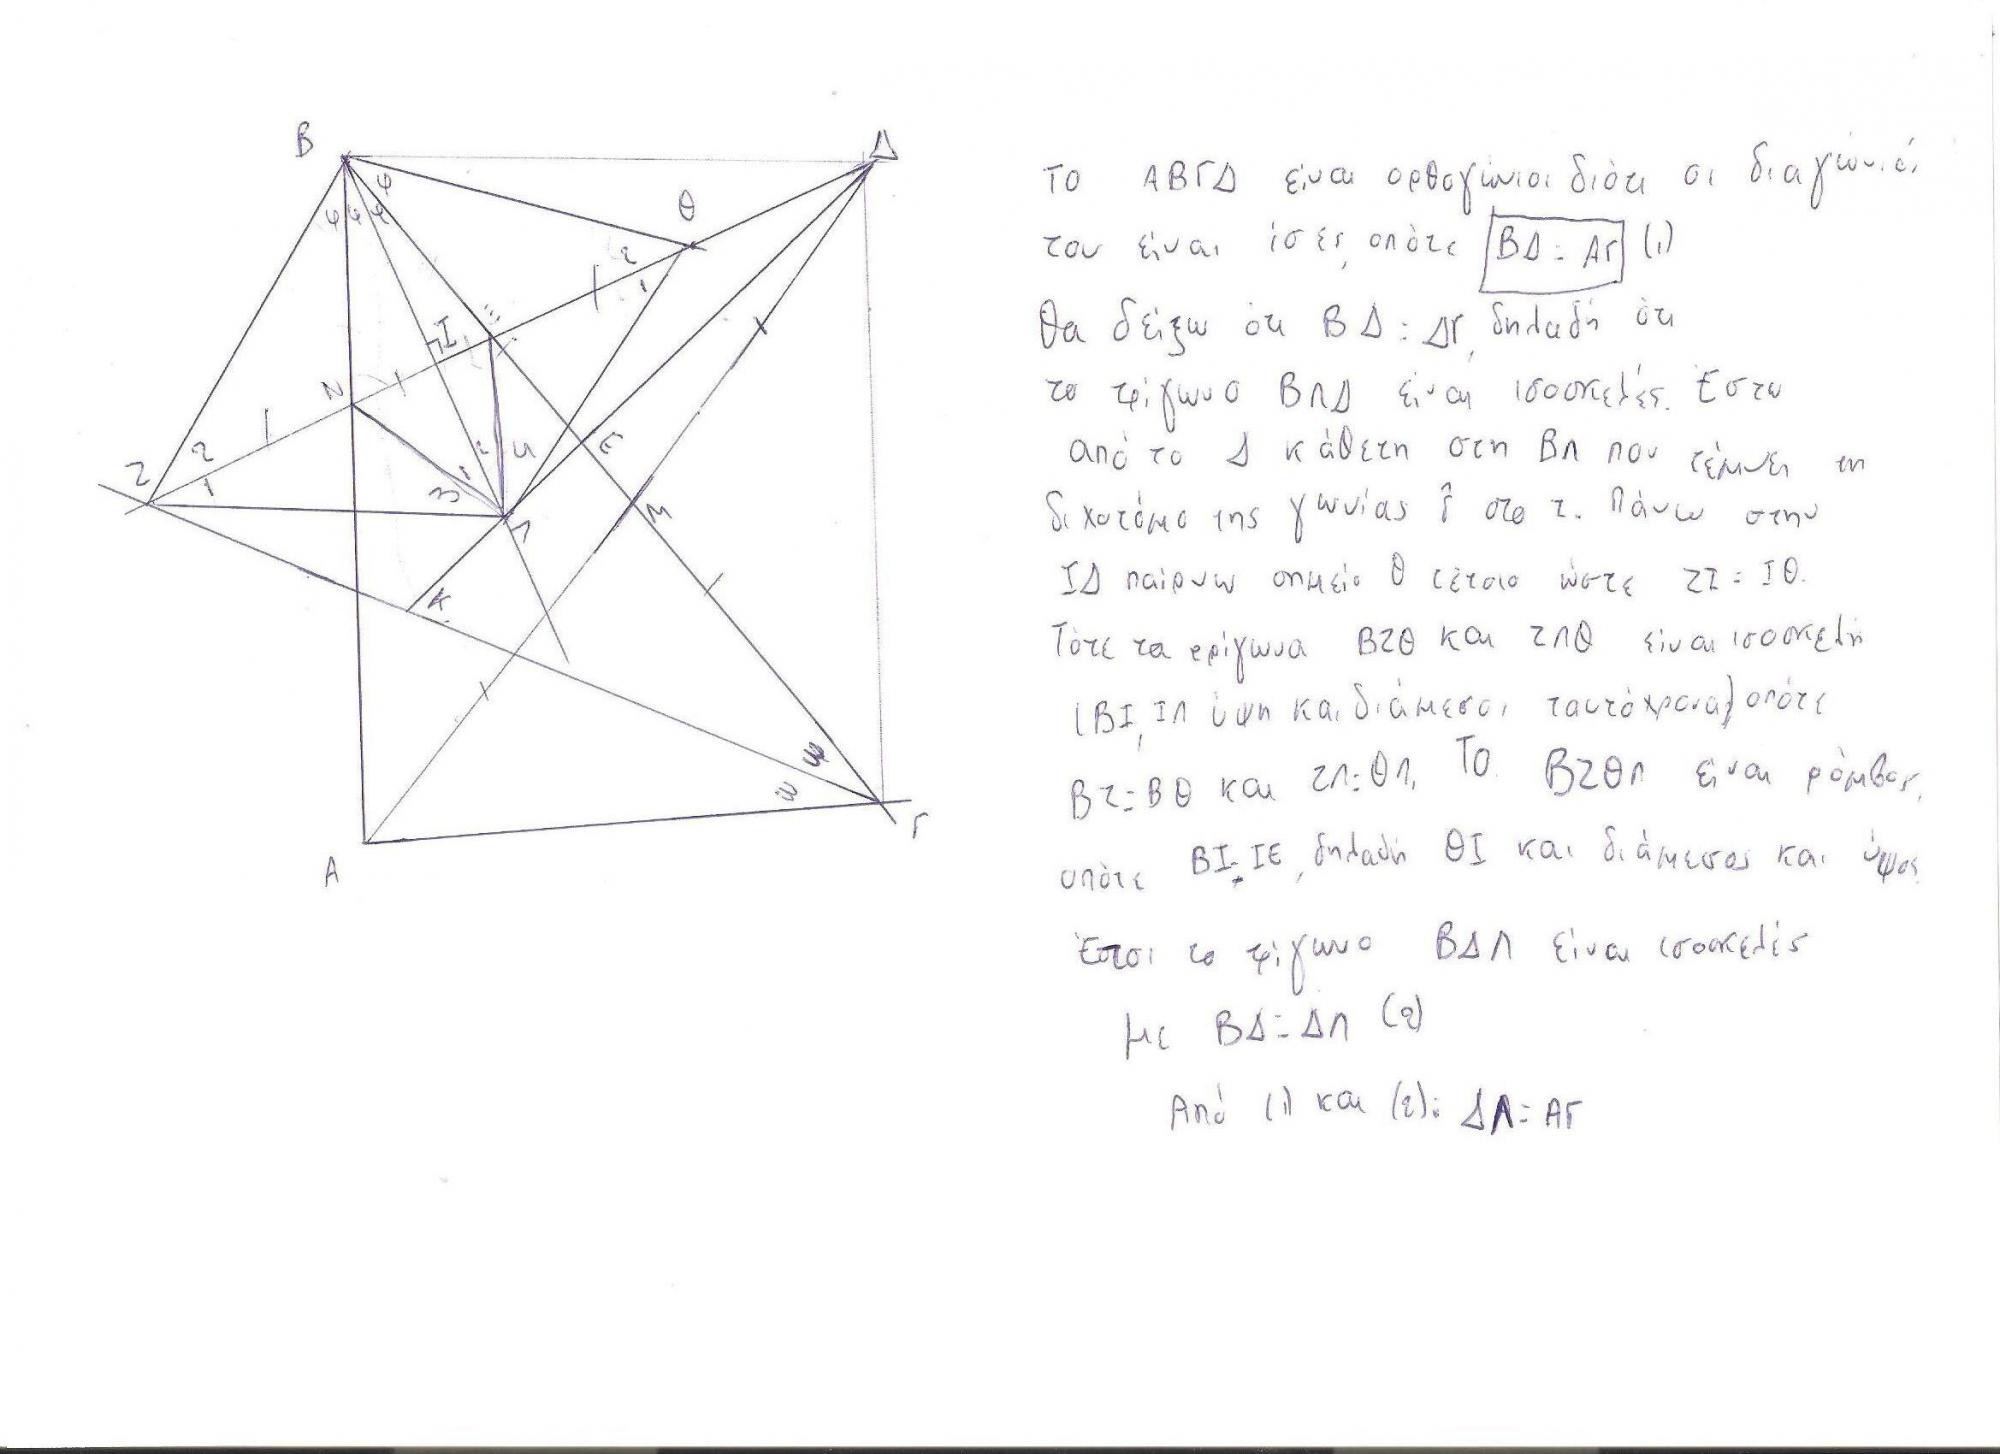 Β
Δ
φ
φ φ φ
Θ
2
1
Ι
Ξ
Ν
Ζ
2
1
3
1
2
4
Ε
Λ
Μ
Κ
ω
ω
Α
Γ
Το ΑΒΓΔ είναι ορθογώνιοι διότι οι διαγώνιέ,
του είναι ίσες, οπότε ΒΔ = ΑΓ (1)
Θα δείξω ότι ΒΔ = ΔΓ, δηλαδή ότι
το τρίγωνο ΒΛΔ είναι ισοσκελές. Έστω
από το Δ κάθετη στη ΒΛ που τέμνει τη
διχοτόμο της γωνίας Γ̂ στο Ζ. Πάνω στην
ΙΔ παίρνω σημείο Θ τέτοιο ώστε ΖΙ = ΙΘ.
Τότε τα τρίγωνα ΒΖΘ και ΖΛΘ είναι ισοσκελή
(ΒΙ, ΙΛ ύψη και διάμεσοι ταυτόχρονα) οπότε
ΒΖ = ΒΘ και ΖΛ = ΘΛ. Το ΒΖΘΛ είναι ρόμβος,
οπότε ΒΙ = ΙΕ, δηλαδή ΘΙ και διάμεσος και ύψος.
Έτσι το τρίγωνο ΒΔΛ είναι ισοσκελές
με ΒΔ = ΔΛ (2)
Από (1) και (2): ΔΛ = ΑΓ